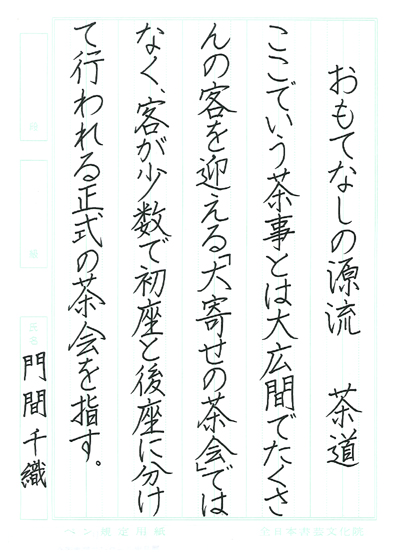 おもてなしの源流　茶道
ここでいう茶事とは大広間でたくさ
んの客を迎える「大寄せの茶会」では
なく、客が少数で初座と後座に分け
て行われる正式の茶会を指す。
氏名
門間千織
ペン検定用紙
全日本書芸文化院